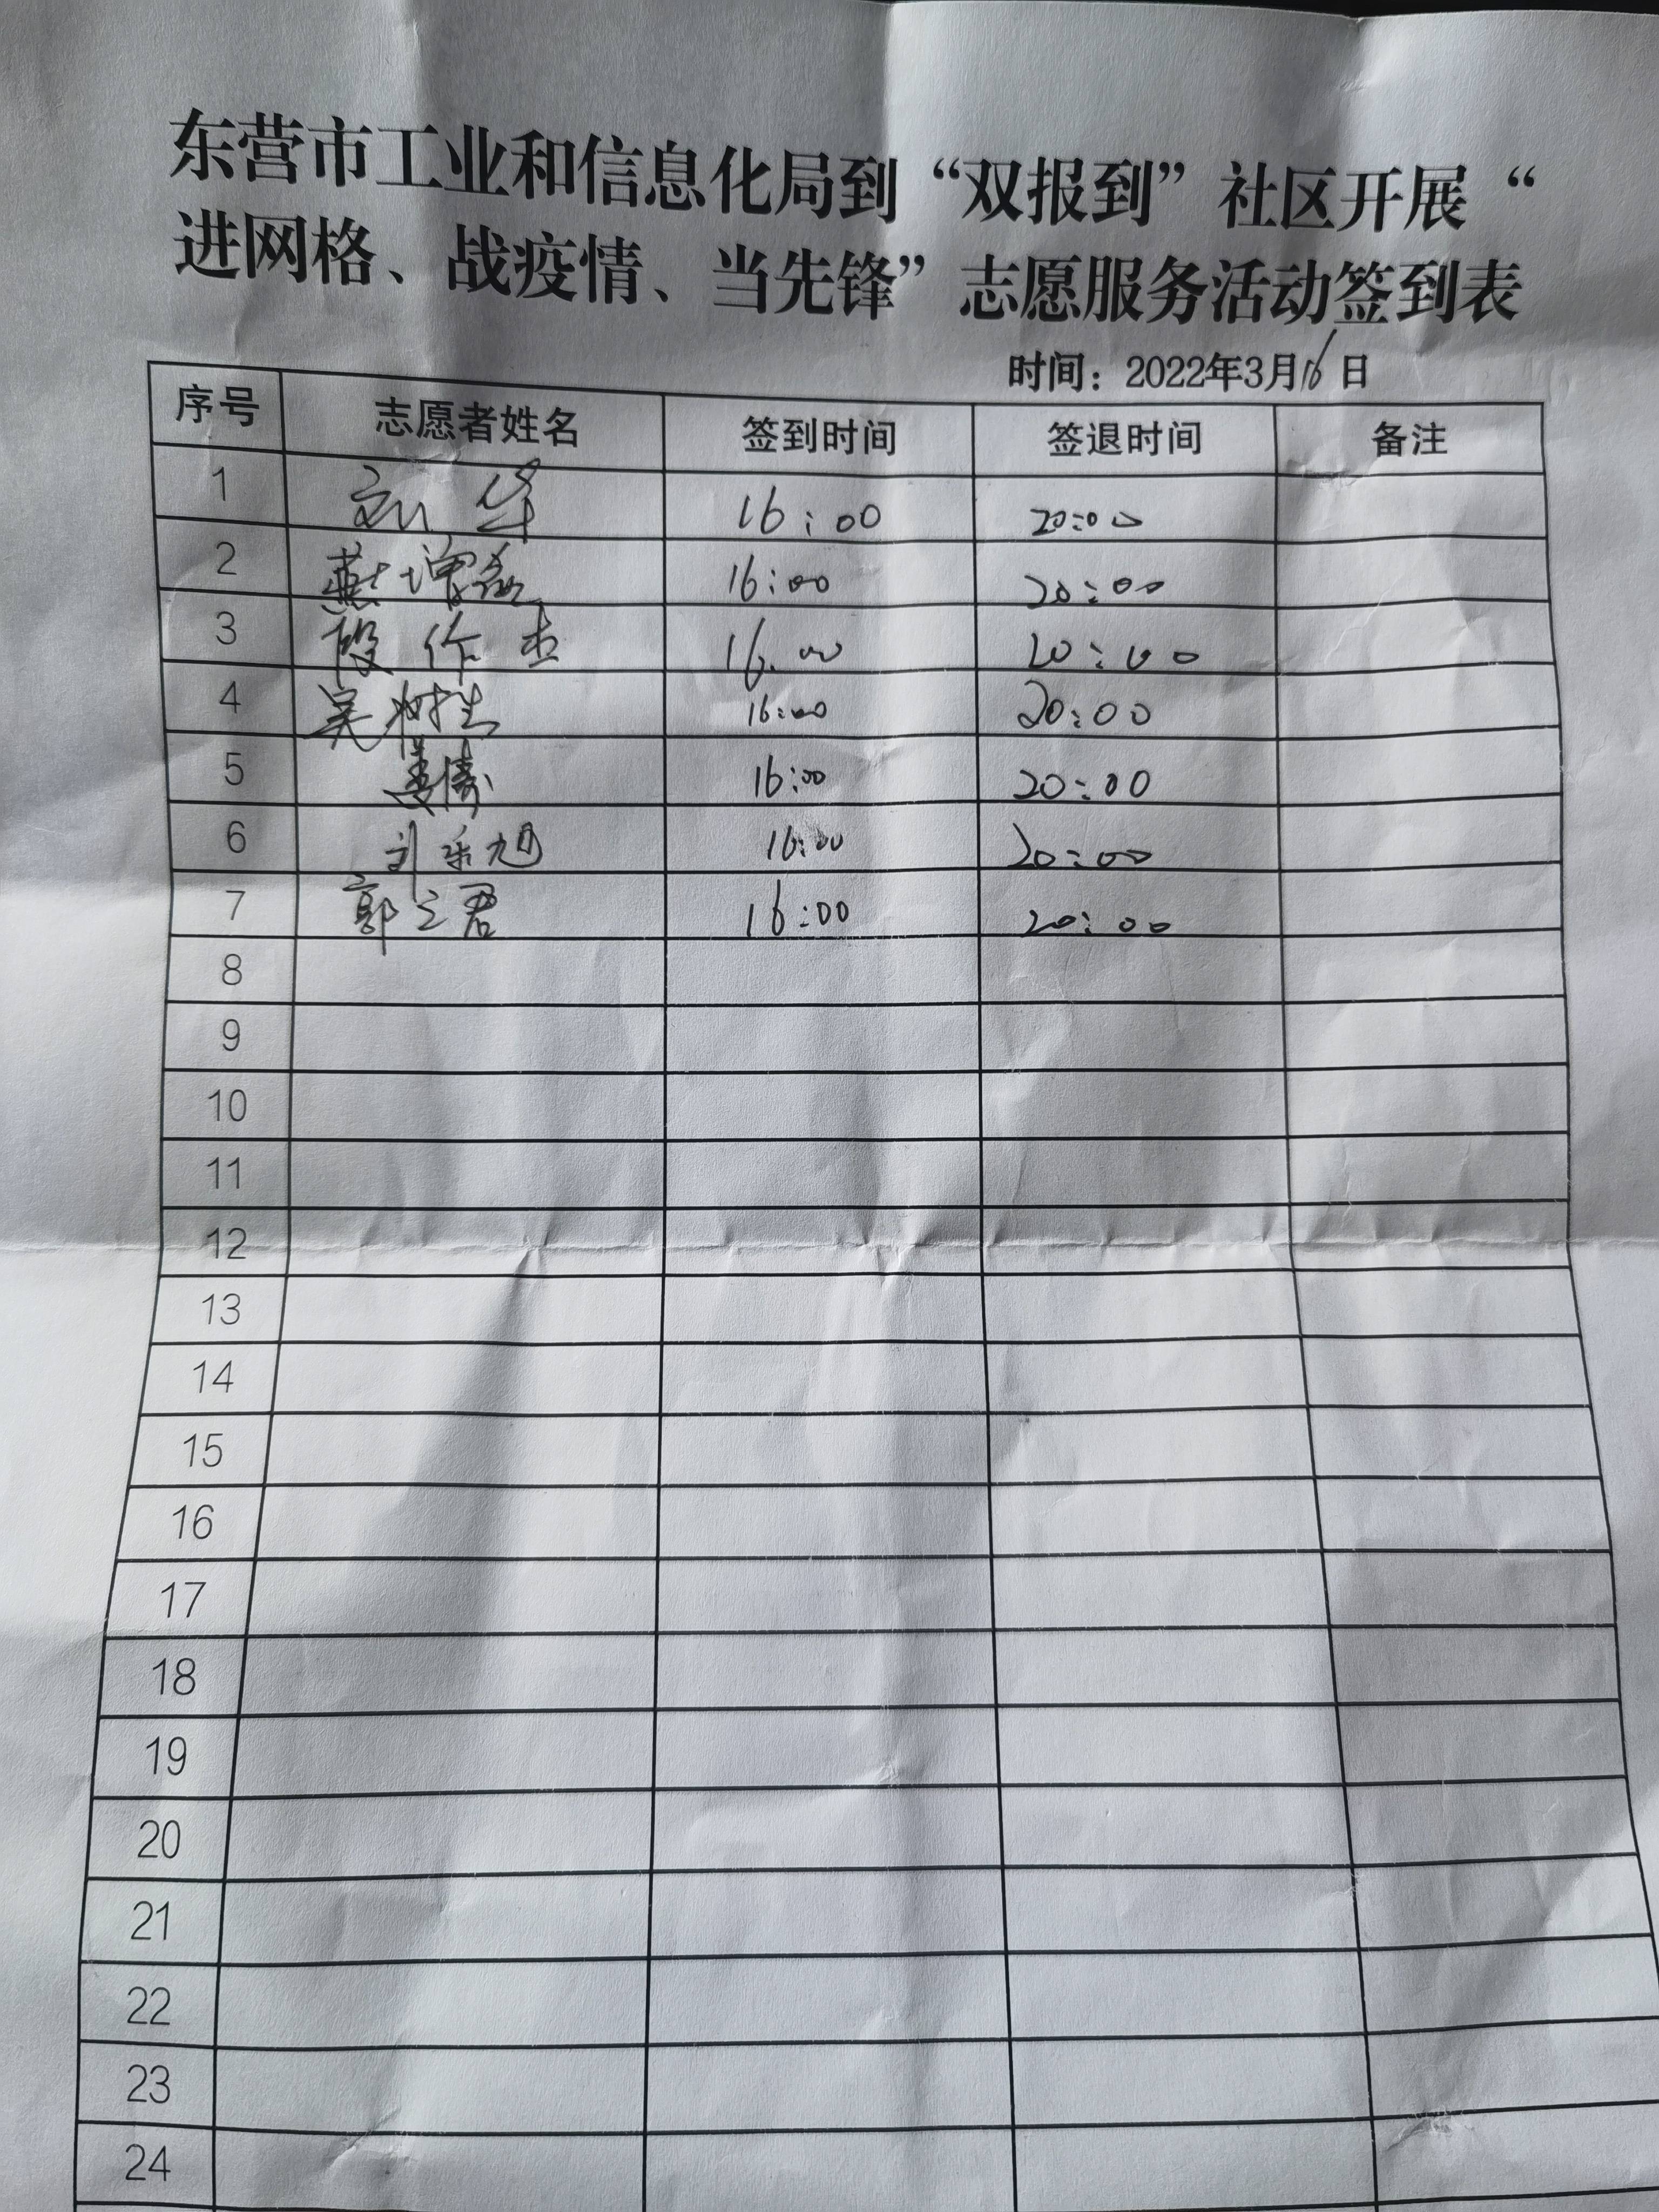 东营市工业和信息化局到“双报到”社区开展“
进网格、战疫情、当先锋”志愿服务活动签到表
时间：2022年3月16日
序号 志愿者姓名 签到时间 签退时间 备注
1 刘华 16:00 20:00
2 燕增磊 16:00 20:00
3 段作杰 16:00 20:00
4 吴树生 16:00 20:00
5 姜倩 16:00 20:00
6 刘乐旭 16:00 20:00
7 郭立君 16:00 20:00
8
9
10
11
12
13
14
15
16
17
18
19
20
21
22
23
24